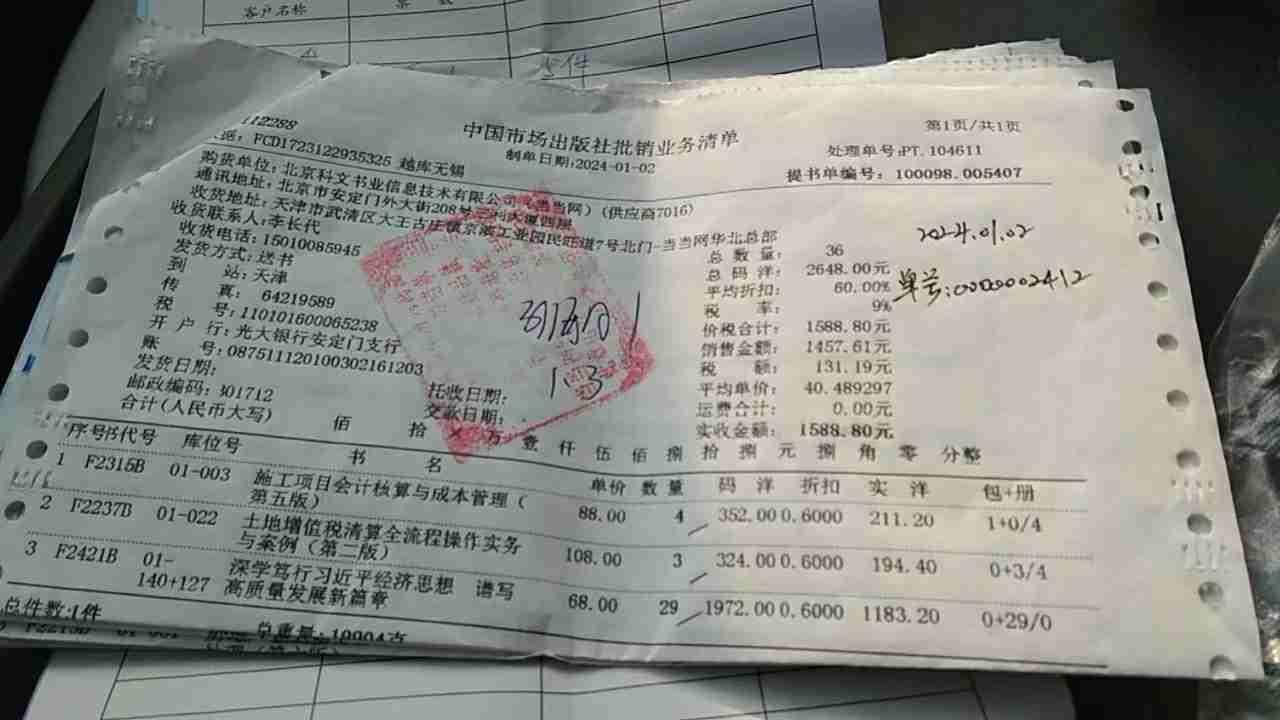 客户名称 票数
件
112288
中国市场出版社批销业务清单
第1页/共1页
FCD1723122935325 越库无锡
制单日期:2024-01-02
处理单号:PT.104611
提书单编号: 100098.005407
购货单位: 北京科文书业信息技术有限公司(当当网) (供应商7016)
通讯地址: 北京市安定门外大街208号三利大厦四层
收货地址: 天津市武清区大王古庄镇京滨工业园民旺道7号北门-当当网华北总部
收货联系人: 李长代
收货电话: 15010085945
发货方式: 送书
到 站: 天津
传 真: 64219589
税 号: 110101600065238
开 户 行: 光大银行安定门支行
账 号: 087511120100302161203
发货日期:
托收日期:
邮政编码: 301712
交款日期:
总 数 量: 36
总 码 洋: 2648.00元
平均折扣: 60.00%
税 率: 9%
价税合计: 1588.80元
销售金额: 1457.61元
税 额: 131.19元
平均单价: 40.489297
运费合计: 0.00元
实收金额: 1588.80元
2024.01.02
单号:0000002412
1.3
合计(人民币大写) 佰 拾 × 万 壹 仟 伍 佰 捌 拾 捌 元 捌 角 零 分整
序号 书代号 库位号 书 名 单价 数量 码 洋 折扣 实 洋 包+册
1 F2315B 01-003 施工项目会计核算与成本管理( 88.00 4 352.00 0.6000 211.20 1+0/4
第五版)
2 F2237B 01-022 土地增值税清算全流程操作实务 108.00 3 324.00 0.6000 194.40 0+3/4
与案例(第二版)
3 F2421B 01- 深学笃行习近平经济思想 谱写 68.00 29 1972.00 0.6000 1183.20 0+29/0
140+127 高质量发展新篇章
总件数:1件 总重量:19904克